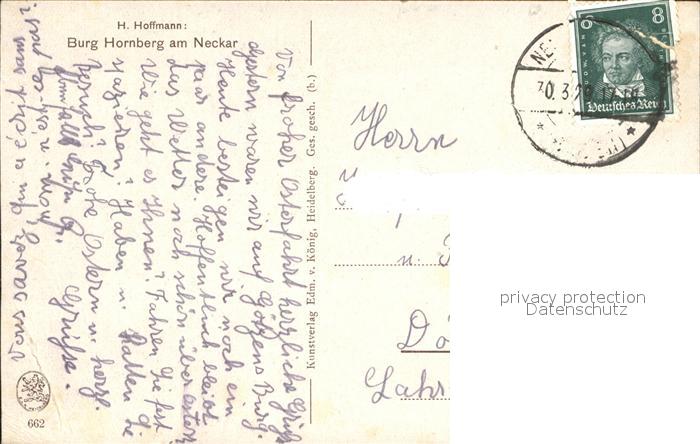 H. Hoffmann:
Burg Hornberg am Neckar
Von froher Osterfahrt herzliche Grüße
gestern waren wir auf Götzens Burg.
Heute besteigen wir noch ein
paar andere. Hoffentlich bleibt
das Wetter noch schön über Ostern
Wie geht es Ihnen? Fahren Sie fest
spazieren? Haben u. hatten Sie
Besuch? Frohe Ostern u. herzl.
Grüße.
Vous savez, qui a écrit sans
n'est-ce pas?
Kunstverlag Edm. v. König, Heidelberg. Ges. gesch. (b.)
662
8 8
Deutsches Reich
30.3.2
Herrn
u.
Dö
Lahr
privacy protection
Datenschutz